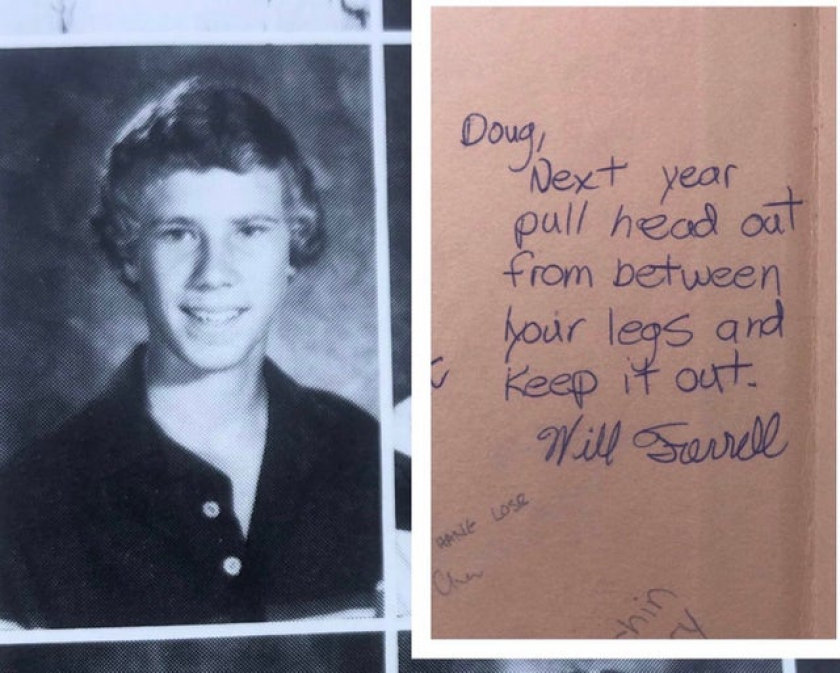 Doug,
Next year
pull head out
from between
your legs and
keep it out.
Will Farrell
LOSE